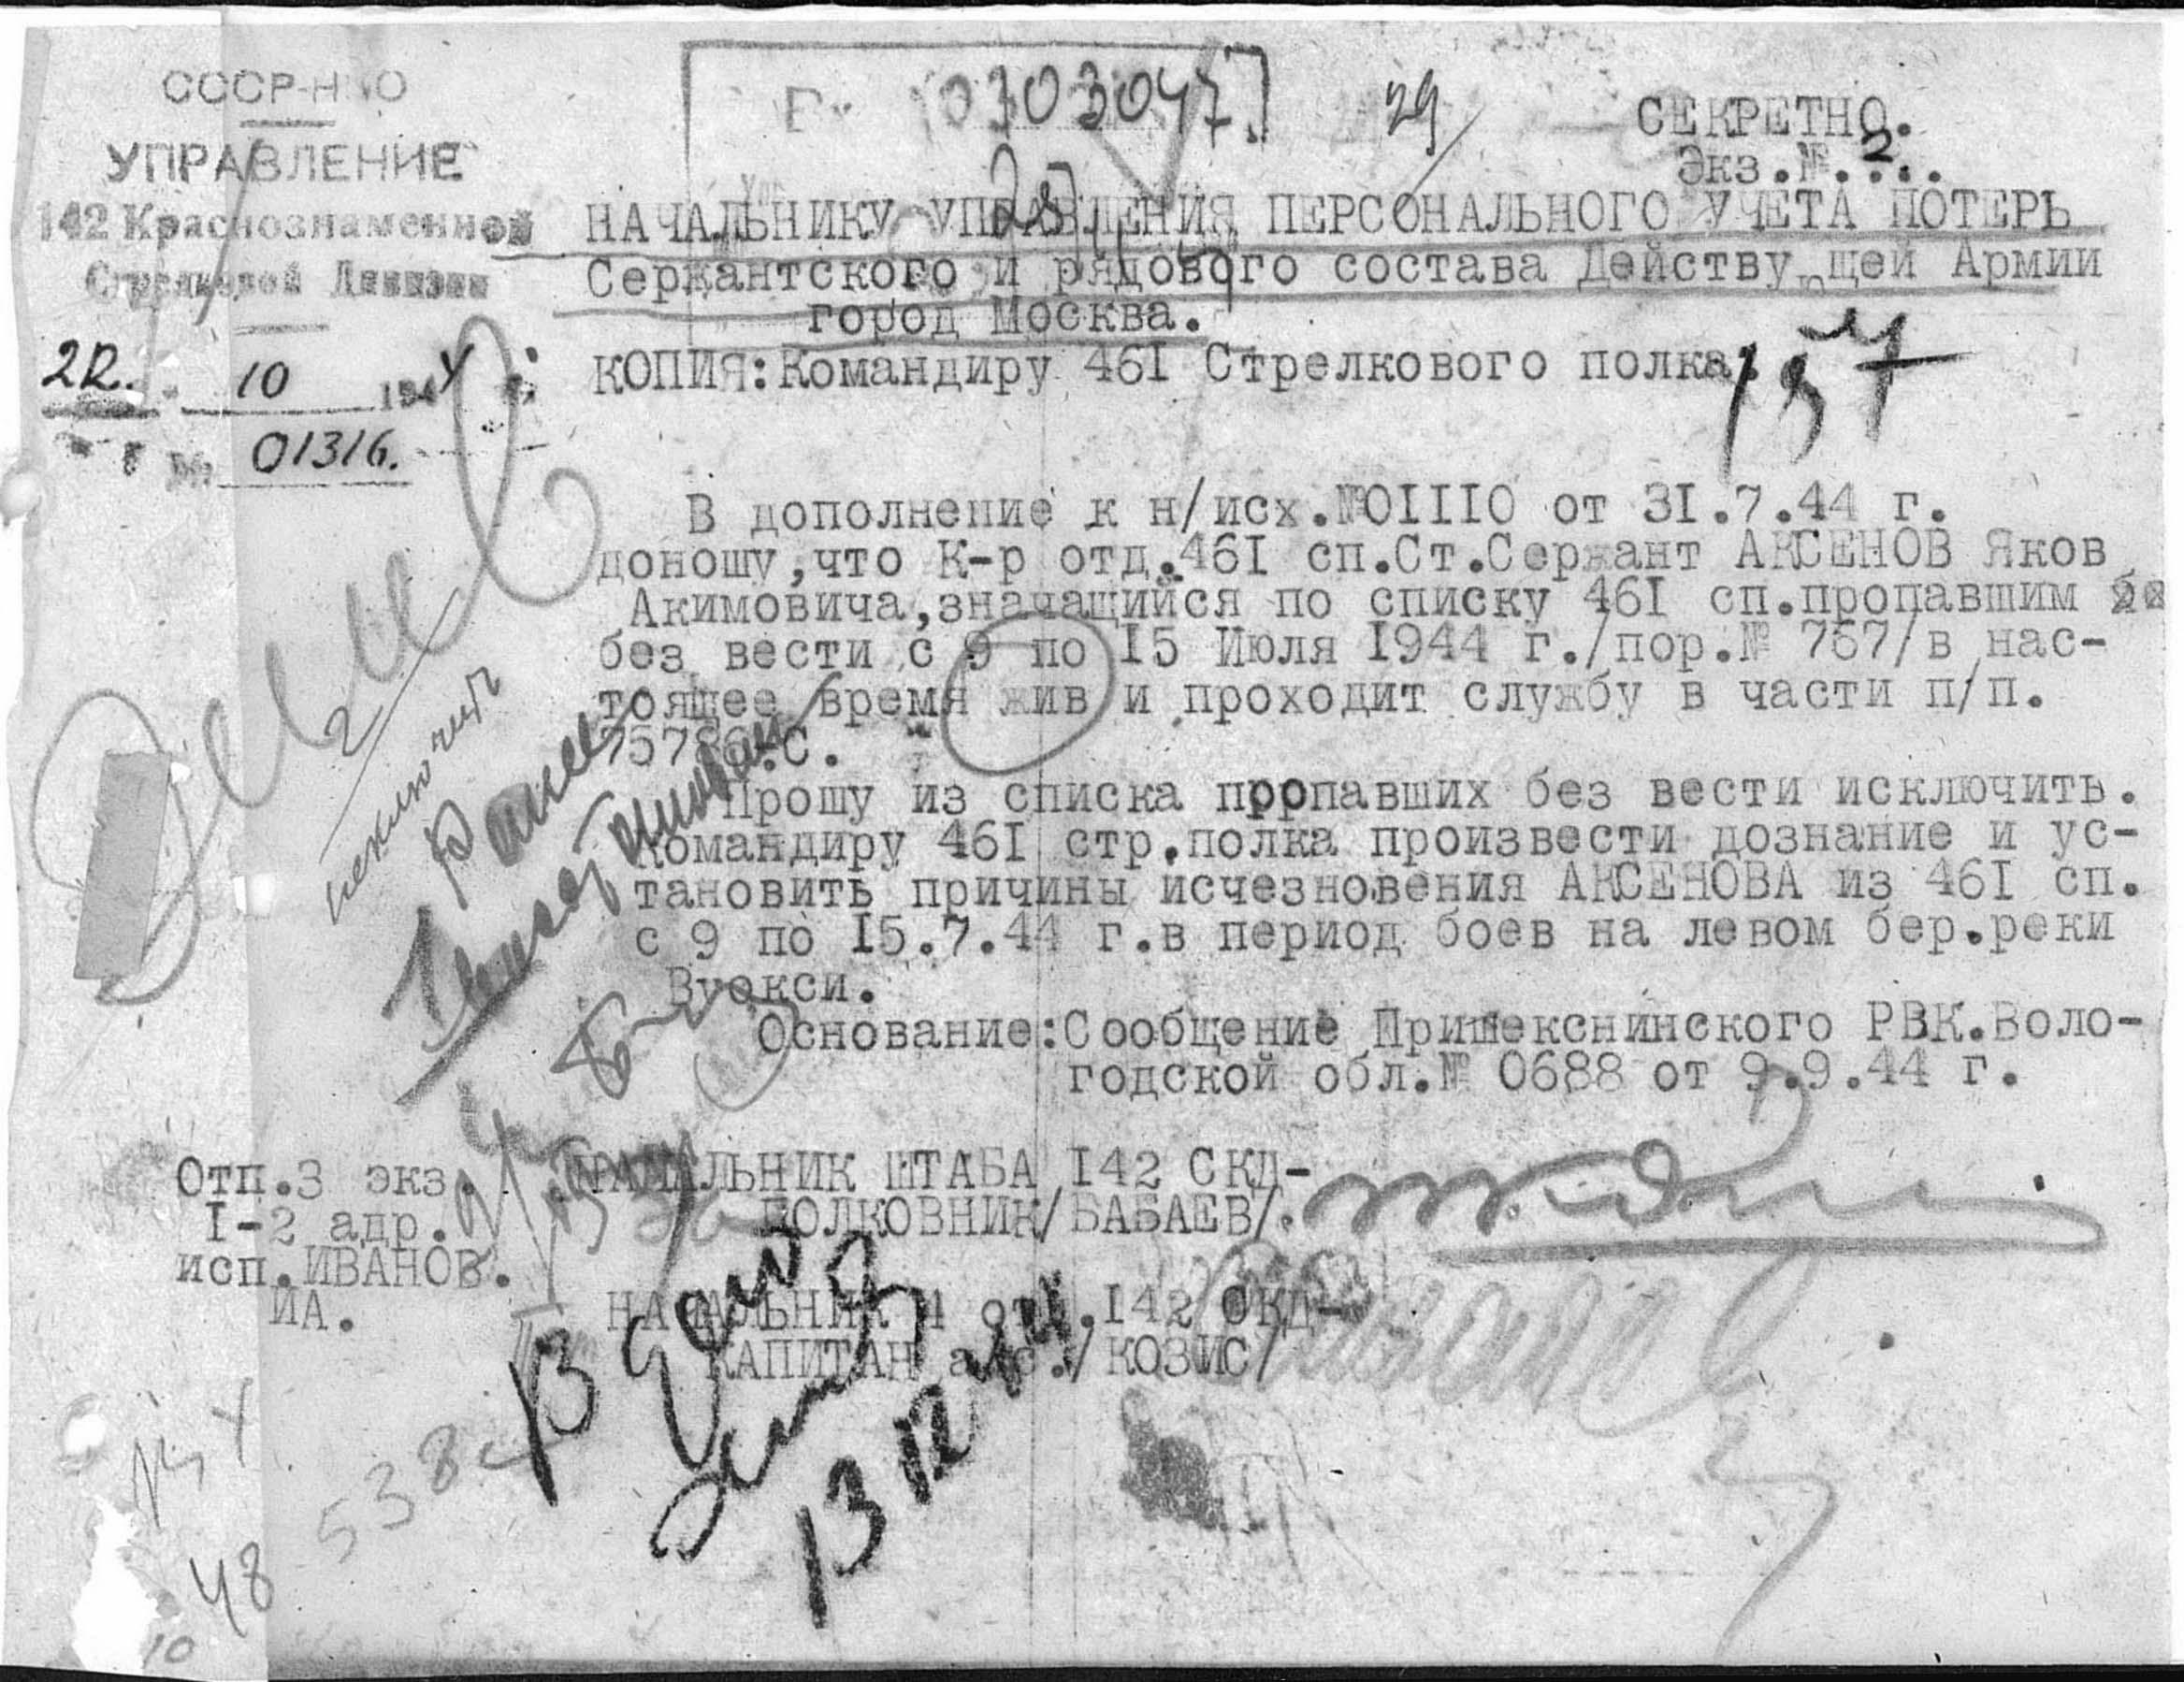 СССР-НКО
УПРАВЛЕНИЕ
142 Краснознаменной
Стрелковой Дивизии
22. 10 1944 г.
№ 01316.
0303047
29
СЕКРЕТНО.
Экз.№.2..
НАЧАЛЬНИКУ УПРАВЛЕНИЯ ПЕРСОНАЛЬНОГО УЧЕТА ПОТЕРЬ
Сержантского и рядового состава Действующей Армии
город Москва.
КОПИЯ:Командиру 461 Стрелкового полка.
В дополнение к н/исх.№01110 от 31.7.44 г.
доношу,что К-р отд.461 сп.Ст.Сержант АКСЕНОВ Яков
Акимовича,значащийся по списку 461 сп.пропавшим
без вести с 9 по 15 Июля 1944 г./пор.№ 767/в нас-
тоящее время жив и проходит службу в части п/п.
75786-С.
Прошу из списка пропавших без вести исключить.
Командиру 461 стр.полка произвести дознание и ус-
тановить причины исчезновения АКСЕНОВА из 461 сп.
с 9 по 15.7.44 г.в период боев на левом бер.реки
Вуокси.
Основание:Сообщение Пришекснинского РВК.Воло-
годской обл.№ 0688 от 9.9.44 г.
НАЧАЛЬНИК ШТАБА 142 СКД-
ПОЛКОВНИК/БАБАЕВ/.
НАЧАЛЬНИК 4 отд.142 СКД-
КАПИТАН адс./КОЗИС/
Отп.3 экз.
1-2 адр.
исп.ИВАНОВ.
ИА.
исключить
Ранее
13 12 44
538
48
10